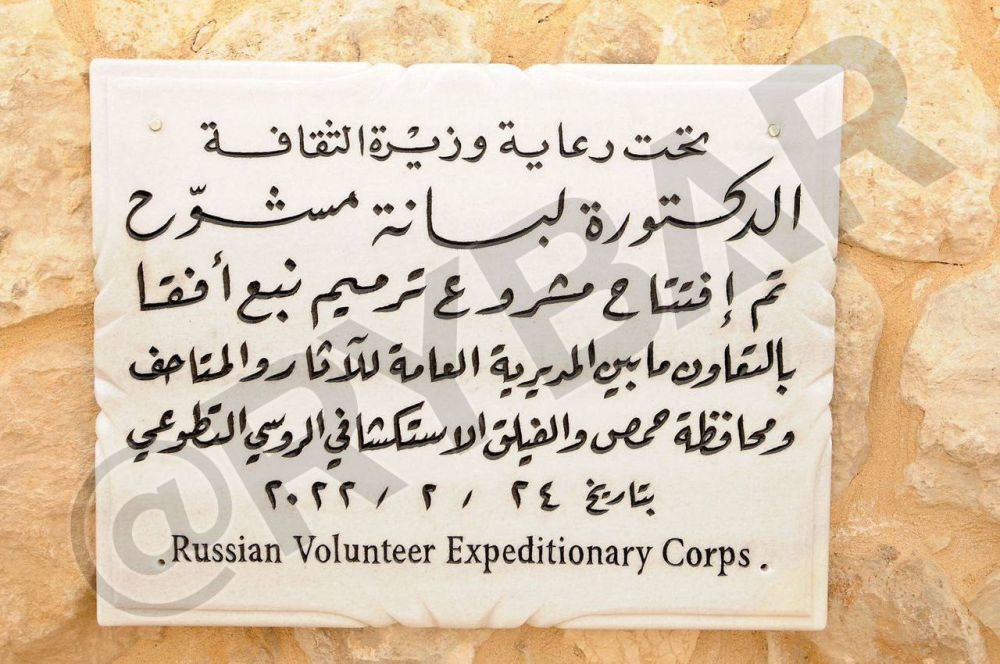 تحت رعاية وزيرة الثقافة
الدكتورة لبانة مشوّح
تم إفتتاح مشروع ترميم نبع أفقا
بالتعاون ما بين المديرية العامة للآثار والمتاحف
ومحافظة حمص والفيلق الاستكشافي الروسي التطوعي
بتاريخ ٢٤ / ٢ / ٢٠٢٢
.Russian Volunteer Expeditionary Corps.
@RYBAR